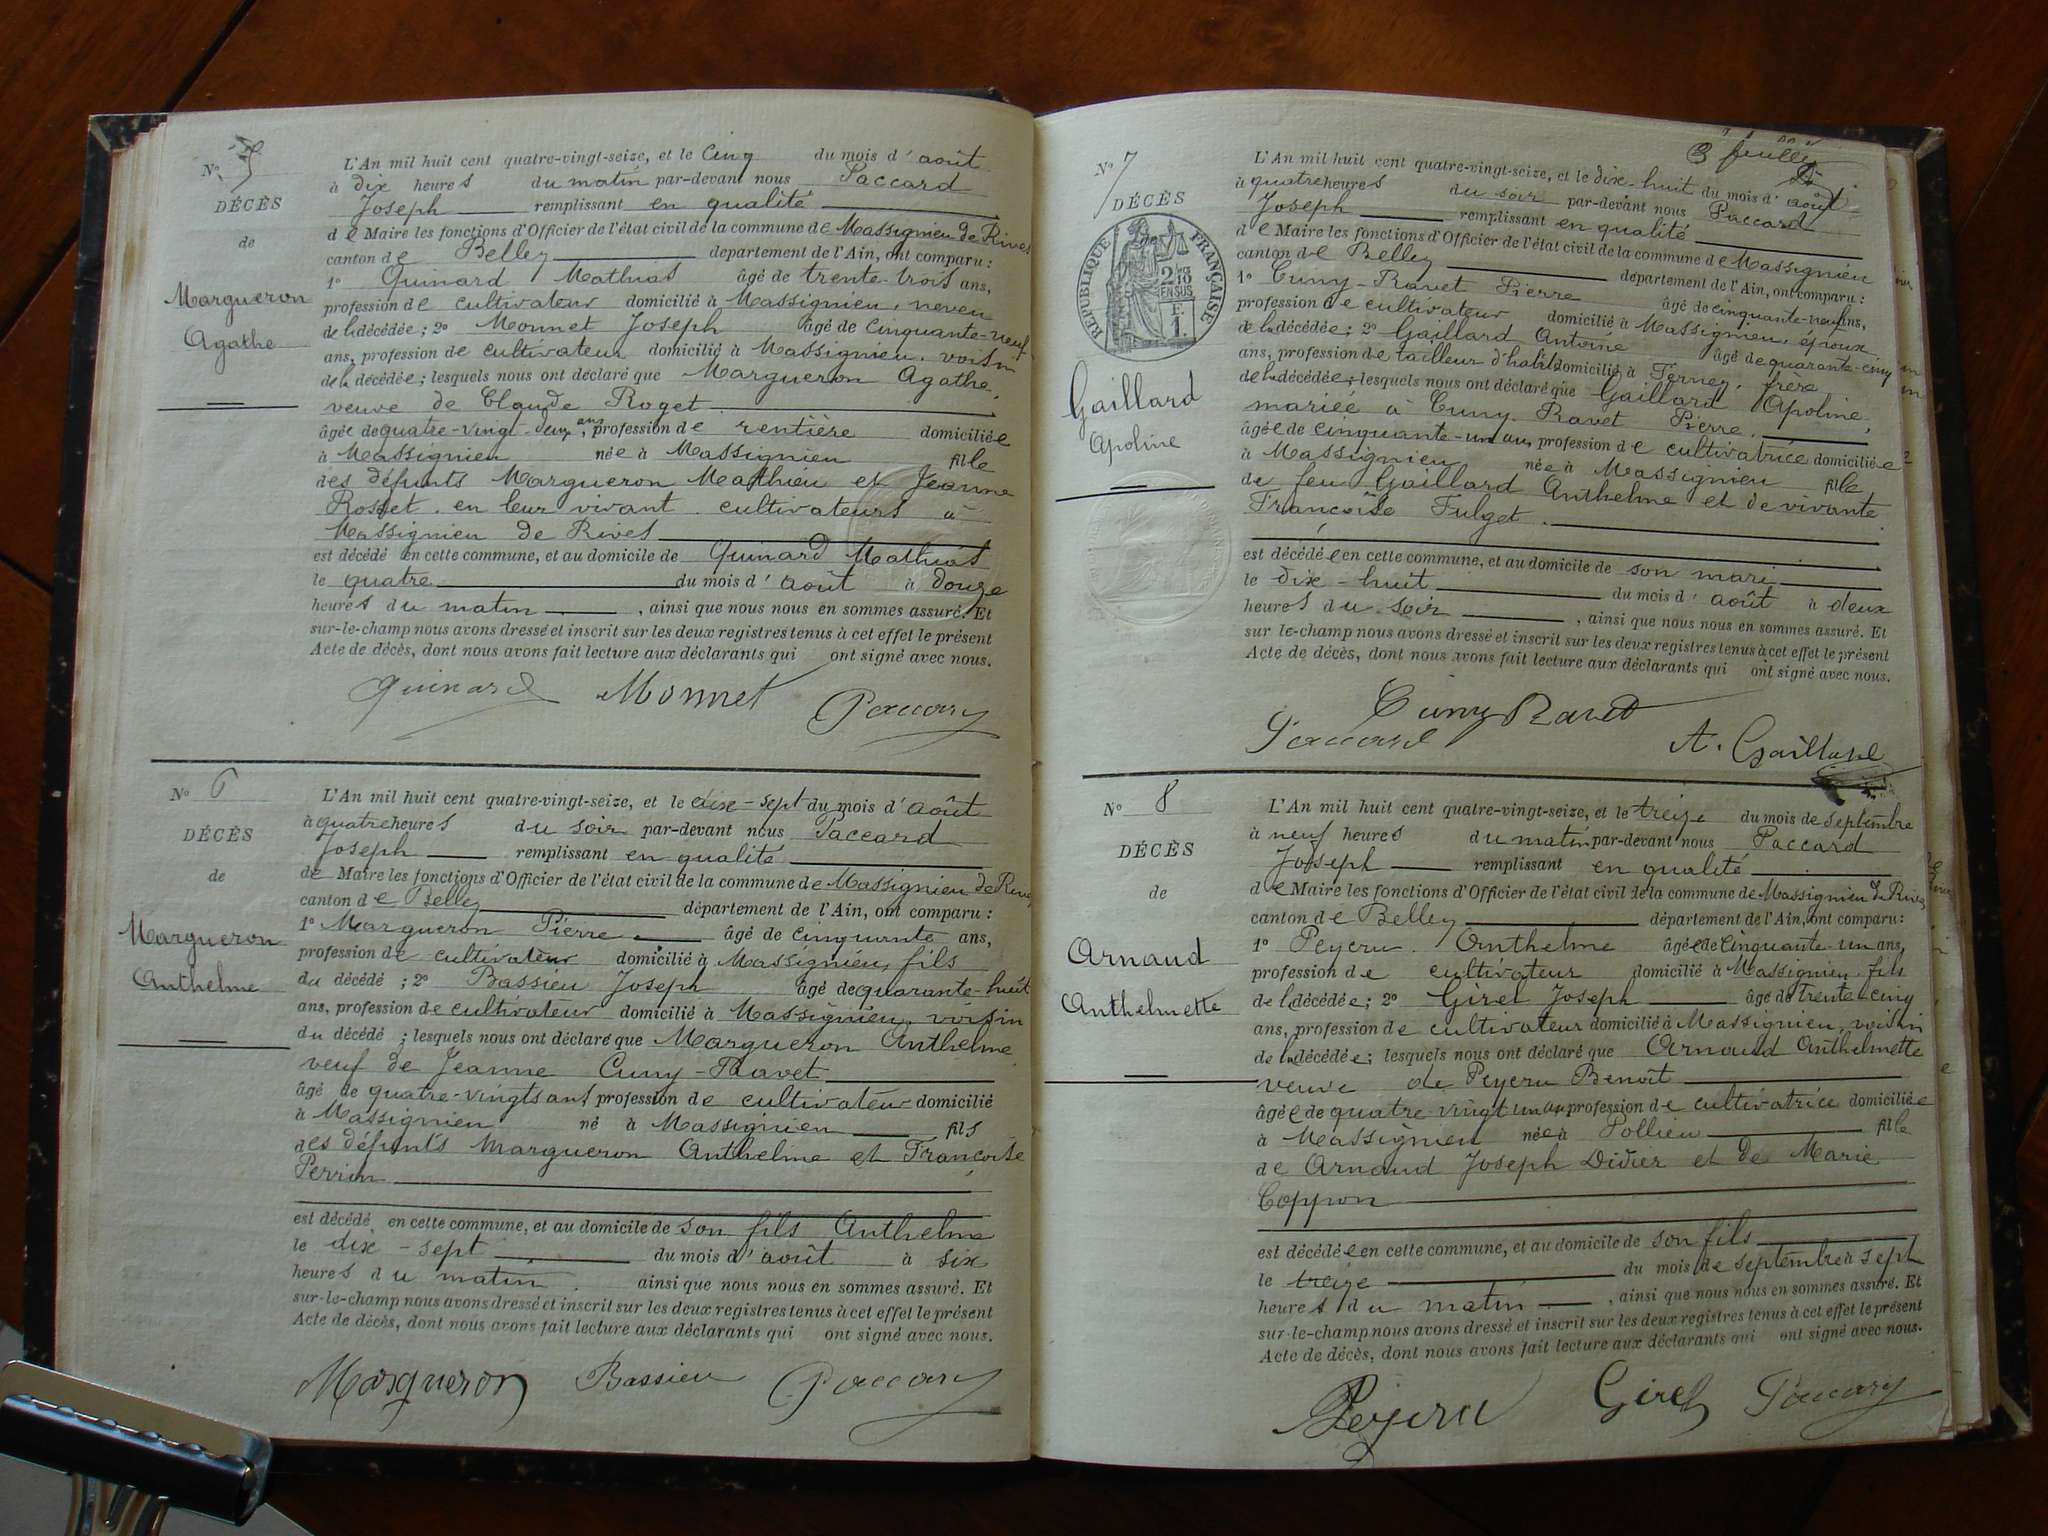 N° 5
DÉCÈS
de
Margueron
Agathe
L'An mil huit cent quatre-vingt-seize, et le cinq du mois d'août
à dix heures du matin par-devant nous Paccard
Joseph remplissant en qualité
de Maire les fonctions d'Officier de l'état civil de la commune de Massignieu de Rives
canton de Belley département de l'Ain, ont comparu :
1° Guinard Mathias âgé de trente-trois ans,
profession de cultivateur domicilié à Massignieu, neveu
de la décédée ; 2° Monnet Joseph âgé de cinquante-neuf
ans, profession de cultivateur domicilié à Massignieu, voisin
de la décédée ; lesquels nous ont déclaré que Margueron Agathe,
veuve de Claude Roget
âgée de quatre-vingt-deux ans, profession de rentière domiciliée
à Massignieu née à Massignieu fille
des défunts Margueron Mathieu et Jeanne
Rosset en leur vivant cultivateurs à
Massignieu de Rives
est décédé en cette commune, et au domicile de Guinard Mathias
le quatre du mois d'août à douze
heures du matin, ainsi que nous nous en sommes assuré. Et
sur-le-champ nous avons dressé et inscrit sur les deux registres tenus à cet effet le présent
Acte de décès, dont nous avons fait lecture aux déclarants qui ont signé avec nous.
Guinard Monnet Paccard
N° 6
DÉCÈS
de
Margueron
Anthelme
L'An mil huit cent quatre-vingt-seize, et le dix-sept du mois d'août
à quatre heures du soir par-devant nous Paccard
Joseph remplissant en qualité
de Maire les fonctions d'Officier de l'état civil de la commune de Massignieu de Rives
canton de Belley département de l'Ain, ont comparu :
1° Margueron Pierre âgé de cinquante ans,
profession de cultivateur domicilié à Massignieu, fils
du décédé ; 2° Bassieu Joseph âgé de quarante-huit
ans, profession de cultivateur domicilié à Massignieu, voisin
du décédé ; lesquels nous ont déclaré que Margueron Anthelme
veuf de Jeanne Cuny-Ravet
âgé de quatre-vingts ans profession de cultivateur domicilié
à Massignieu né à Massignieu fils
des défunts Margueron Anthelme et Françoise
Perrin
est décédé en cette commune, et au domicile de son fils Anthelme
le dix-sept du mois d'août à six
heures du matin ainsi que nous nous en sommes assuré. Et
sur-le-champ nous avons dressé et inscrit sur les deux registres tenus à cet effet le présent
Acte de décès, dont nous avons fait lecture aux déclarants qui ont signé avec nous.
Margueron Bassieu Paccard
3 feuilles
N° 7
DÉCÈS
de
RÉPUBLIQUE FRANÇAISE
2/10 EN SUS
F. 1.
Gaillard
Apoline
L'An mil huit cent quatre-vingt-seize, et le dix-huit du mois d'août
à quatre heures du soir par-devant nous Paccard
Joseph remplissant en qualité
de Maire les fonctions d'Officier de l'état civil de la commune de Massignieu
canton de Belley département de l'Ain, ont comparu :
1° Cuny-Ravet Pierre âgé de cinquante-neuf ans,
profession de cultivateur domicilié à Massignieu, époux
de la décédée ; 2° Gaillard Antoine âgé de quarante-cinq
ans, profession de tailleur d'habits domicilié à Ferney, frère
de la décédée, lesquels nous ont déclaré que Gaillard Apoline,
mariée à Cuny-Ravet Pierre,
âgée de cinquante-un ans, profession de cultivatrice domiciliée
à Massignieu née à Massignieu fille
de feu Gaillard Anthelme et de vivante
Françoise Fulget
est décédée en cette commune, et au domicile de son mari
le dix-huit du mois d'août à deux
heures du soir, ainsi que nous nous en sommes assuré. Et
sur le-champ nous avons dressé et inscrit sur les deux registres tenus à cet effet le présent
Acte de décès, dont nous avons fait lecture aux déclarants qui ont signé avec nous.
Cuny Ravet
Paccard A. Gaillard
N° 8
DÉCÈS
de
Arnaud
Anthelmette
L'An mil huit cent quatre-vingt-seize, et le treize du mois de septembre
à neuf heures du matin par-devant nous Paccard
Joseph remplissant en qualité
de Maire les fonctions d'Officier de l'état civil de la commune de Massignieu de Rives
canton de Belley département de l'Ain, ont comparu :
1° Peyeru Anthelme âgée de cinquante-un ans,
profession de cultivateur domicilié à Massignieu fils
de la décédée ; 2° Girel Joseph âgé de trente-cinq
ans, profession de cultivateur domicilié à Massignieu, voisin
de la décédée ; lesquels nous ont déclaré que Arnaud Anthelmette
veuve de Peyeru Benoît
âgée de quatre-vingt un an profession de cultivatrice domiciliée
à Massignieu née à Pollieu fille
de Arnaud Joseph Didier et de Marie
Coppon
est décédée en cette commune, et au domicile de son fils
le treize du mois de septembre à sept
heures du matin, ainsi que nous nous en sommes assuré. Et
sur-le-champ nous avons dressé et inscrit sur les deux registres tenus à cet effet le présent
Acte de décès, dont nous avons fait lecture aux déclarants qui ont signé avec nous.
Peyeru Girel Paccard